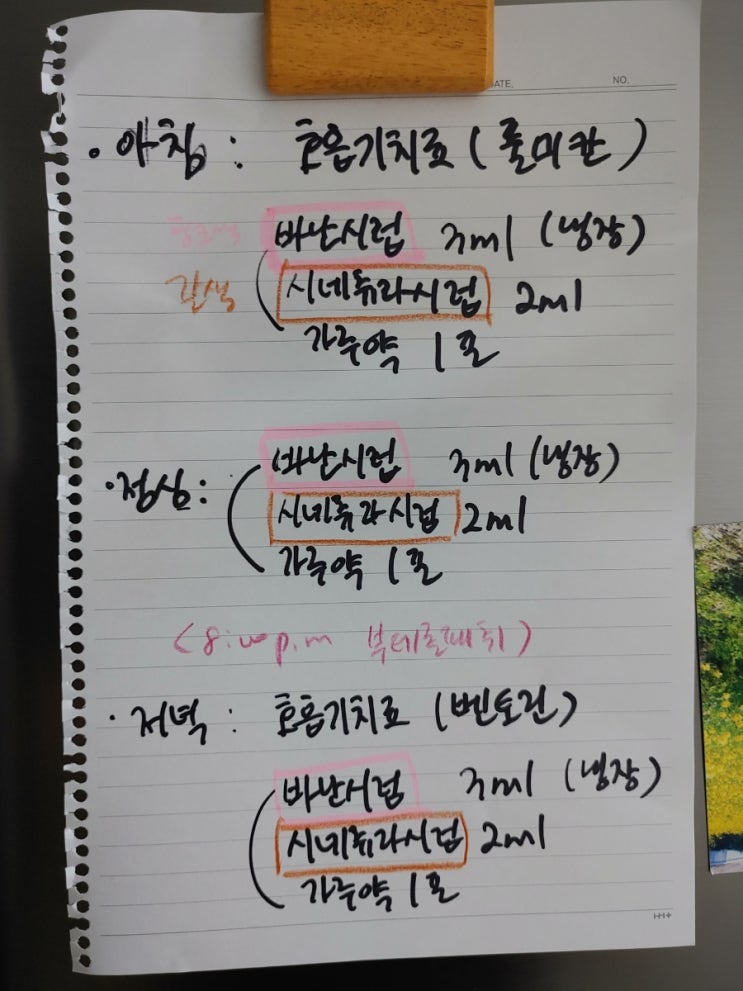 DATE. NO.
· 아침 : 호흡기치료 (풀미칸)
분홍색 바난시럽 3ml (냉장)
갈색 시네츄라시럽 2ml
가루약 1포
· 점심 : 바난시럽 3ml (냉장)
시네츄라시럽 2ml
가루약 1포
(8:00 p.m 부테롤패취)
· 저녁 : 호흡기치료 (벤토린)
바난시럽 3ml (냉장)
시네츄라시럽 2ml
가루약 1포